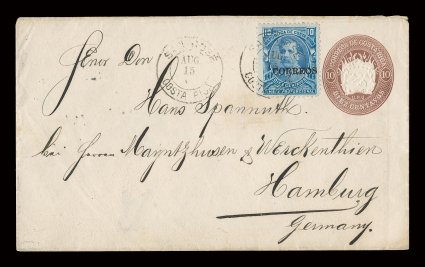 Señor Don
Hans Spannuth.
bei Herren Mayntzhusen & Werckenthien
Hamburg
Germany.
AUG
15
COSTA RICA
10 10
CORREOS
CORREOS DE COSTA RICA
10 10
DIEZ CENTAVOS